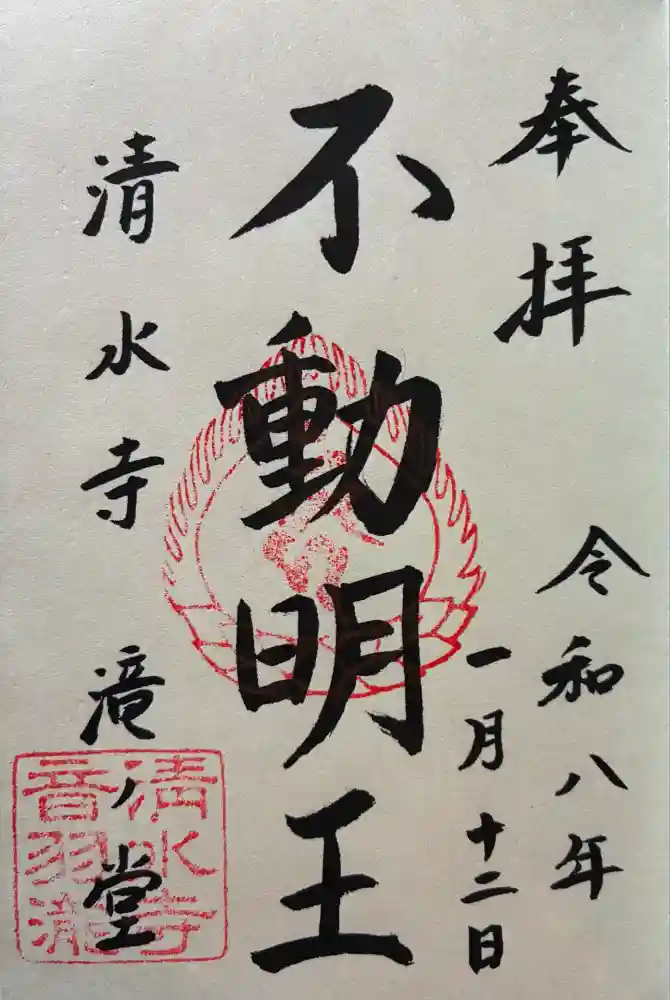 奉拝
令和八年
一月十二日
不動明王
清水寺
滝ノ堂
清水寺
音羽瀧